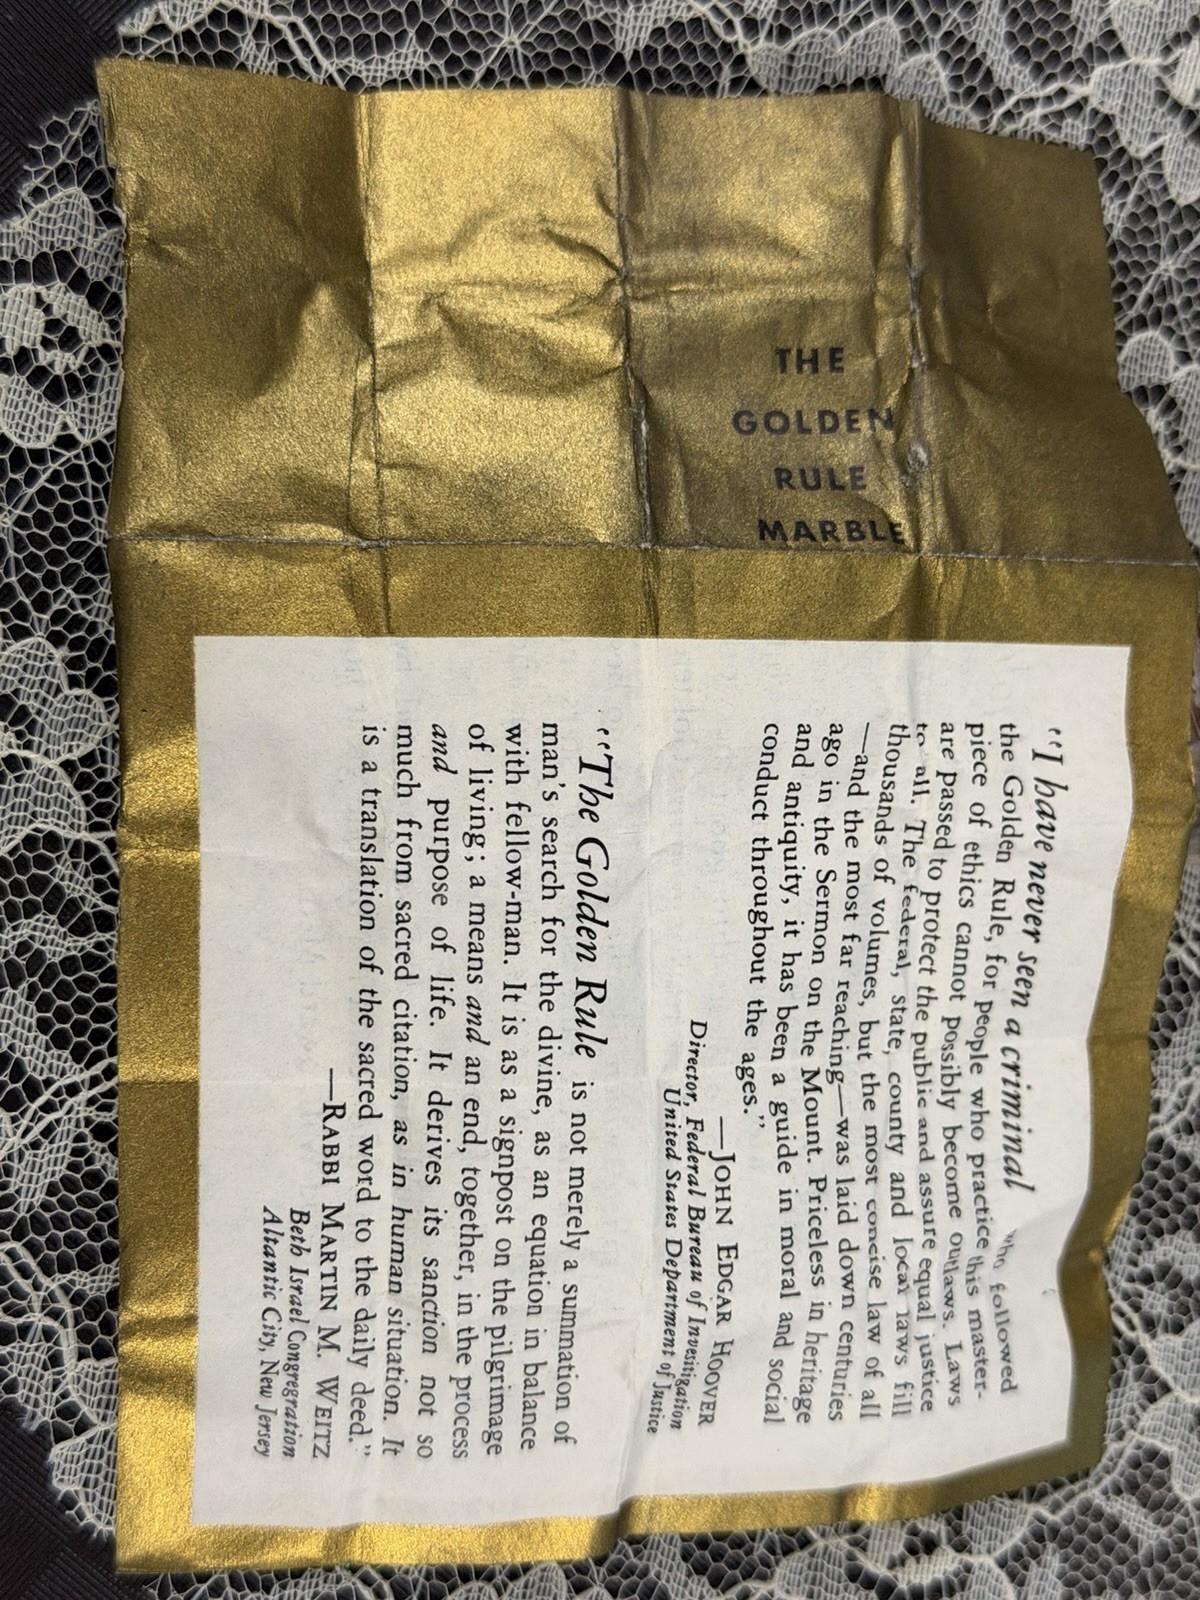 THE
GOLDEN
RULE
MARBLE
"I have never seen a criminal who followed
the Golden Rule, for people who practice this master-
piece of ethics cannot possibly become outlaws. Laws
are passed to protect the public and assure equal justice
to all. The federal, state, county and local laws fill
thousands of volumes, but the most concise law of all
—and the most far reaching—was laid down centuries
ago in the Sermon on the Mount. Priceless in heritage
and antiquity, it has been a guide in moral and social
conduct throughout the ages."
—JOHN EDGAR HOOVER
Director, Federal Bureau of Invesitigation
United States Department of Justice
"The Golden Rule is not merely a summation of
man's search for the divine, as an equation in balance
with fellow-man. It is as a signpost on the pilgrimage
of living; a means and an end, together, in the process
and purpose of life. It derives its sanction not so
much from sacred citation, as in human situation. It
is a translation of the sacred word to the daily deed."
—RABBI MARTIN M. WEITZ
Beth Israel Congregration
Altantic City, New Jersey